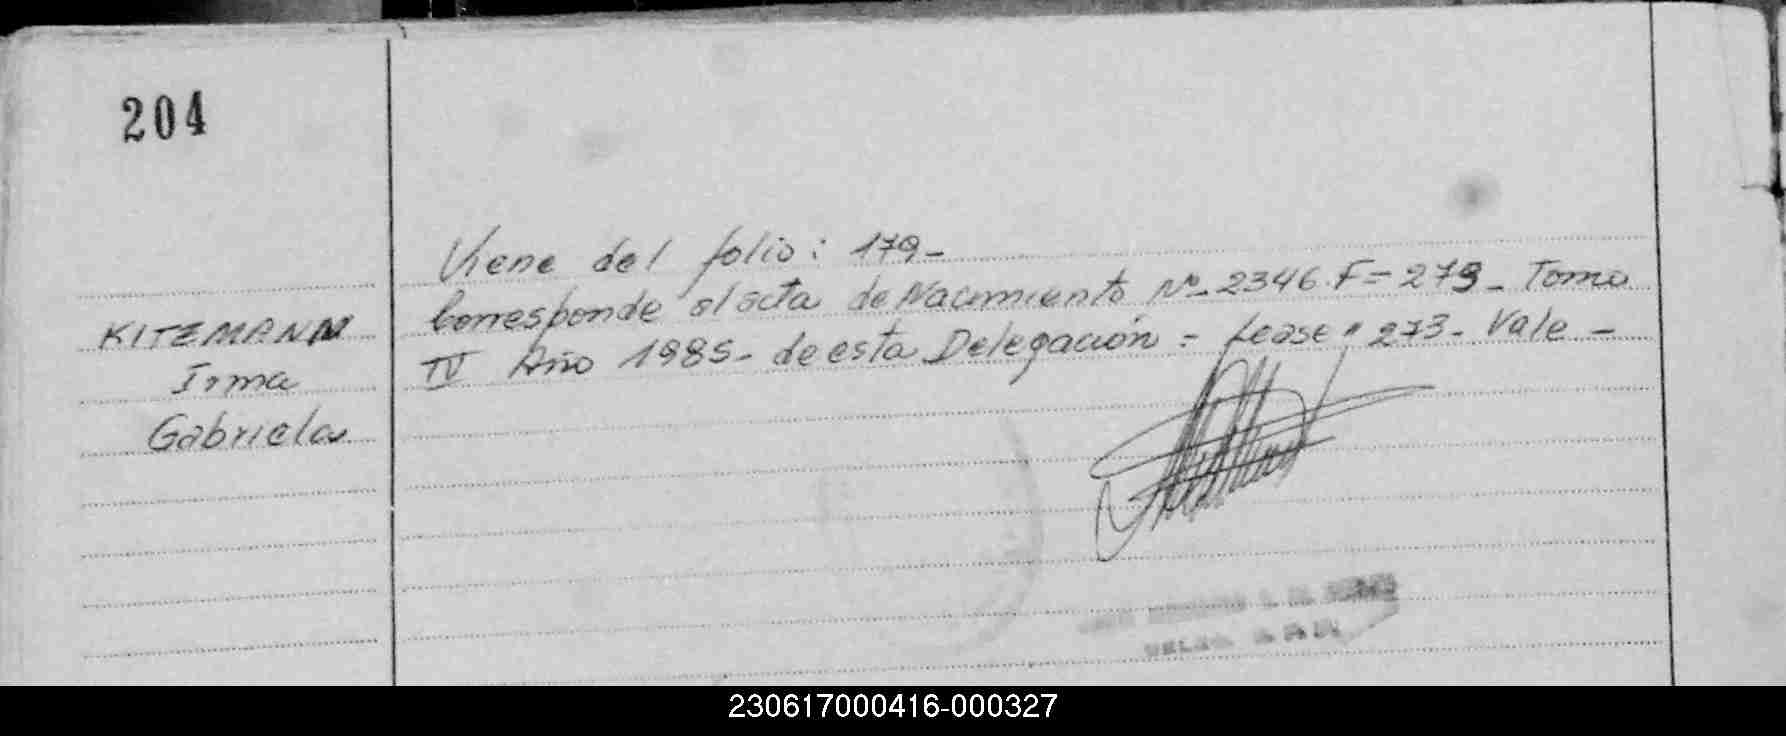 204
Viene del folio: 179-
KITZMANN
Irma
Gabriela
Corresponde al acta de Nacimiento Nº-2346. F=279- Tomo
IV Año 1985- de esta Delegación = Lease: 273- Vale-
230617000416-000327